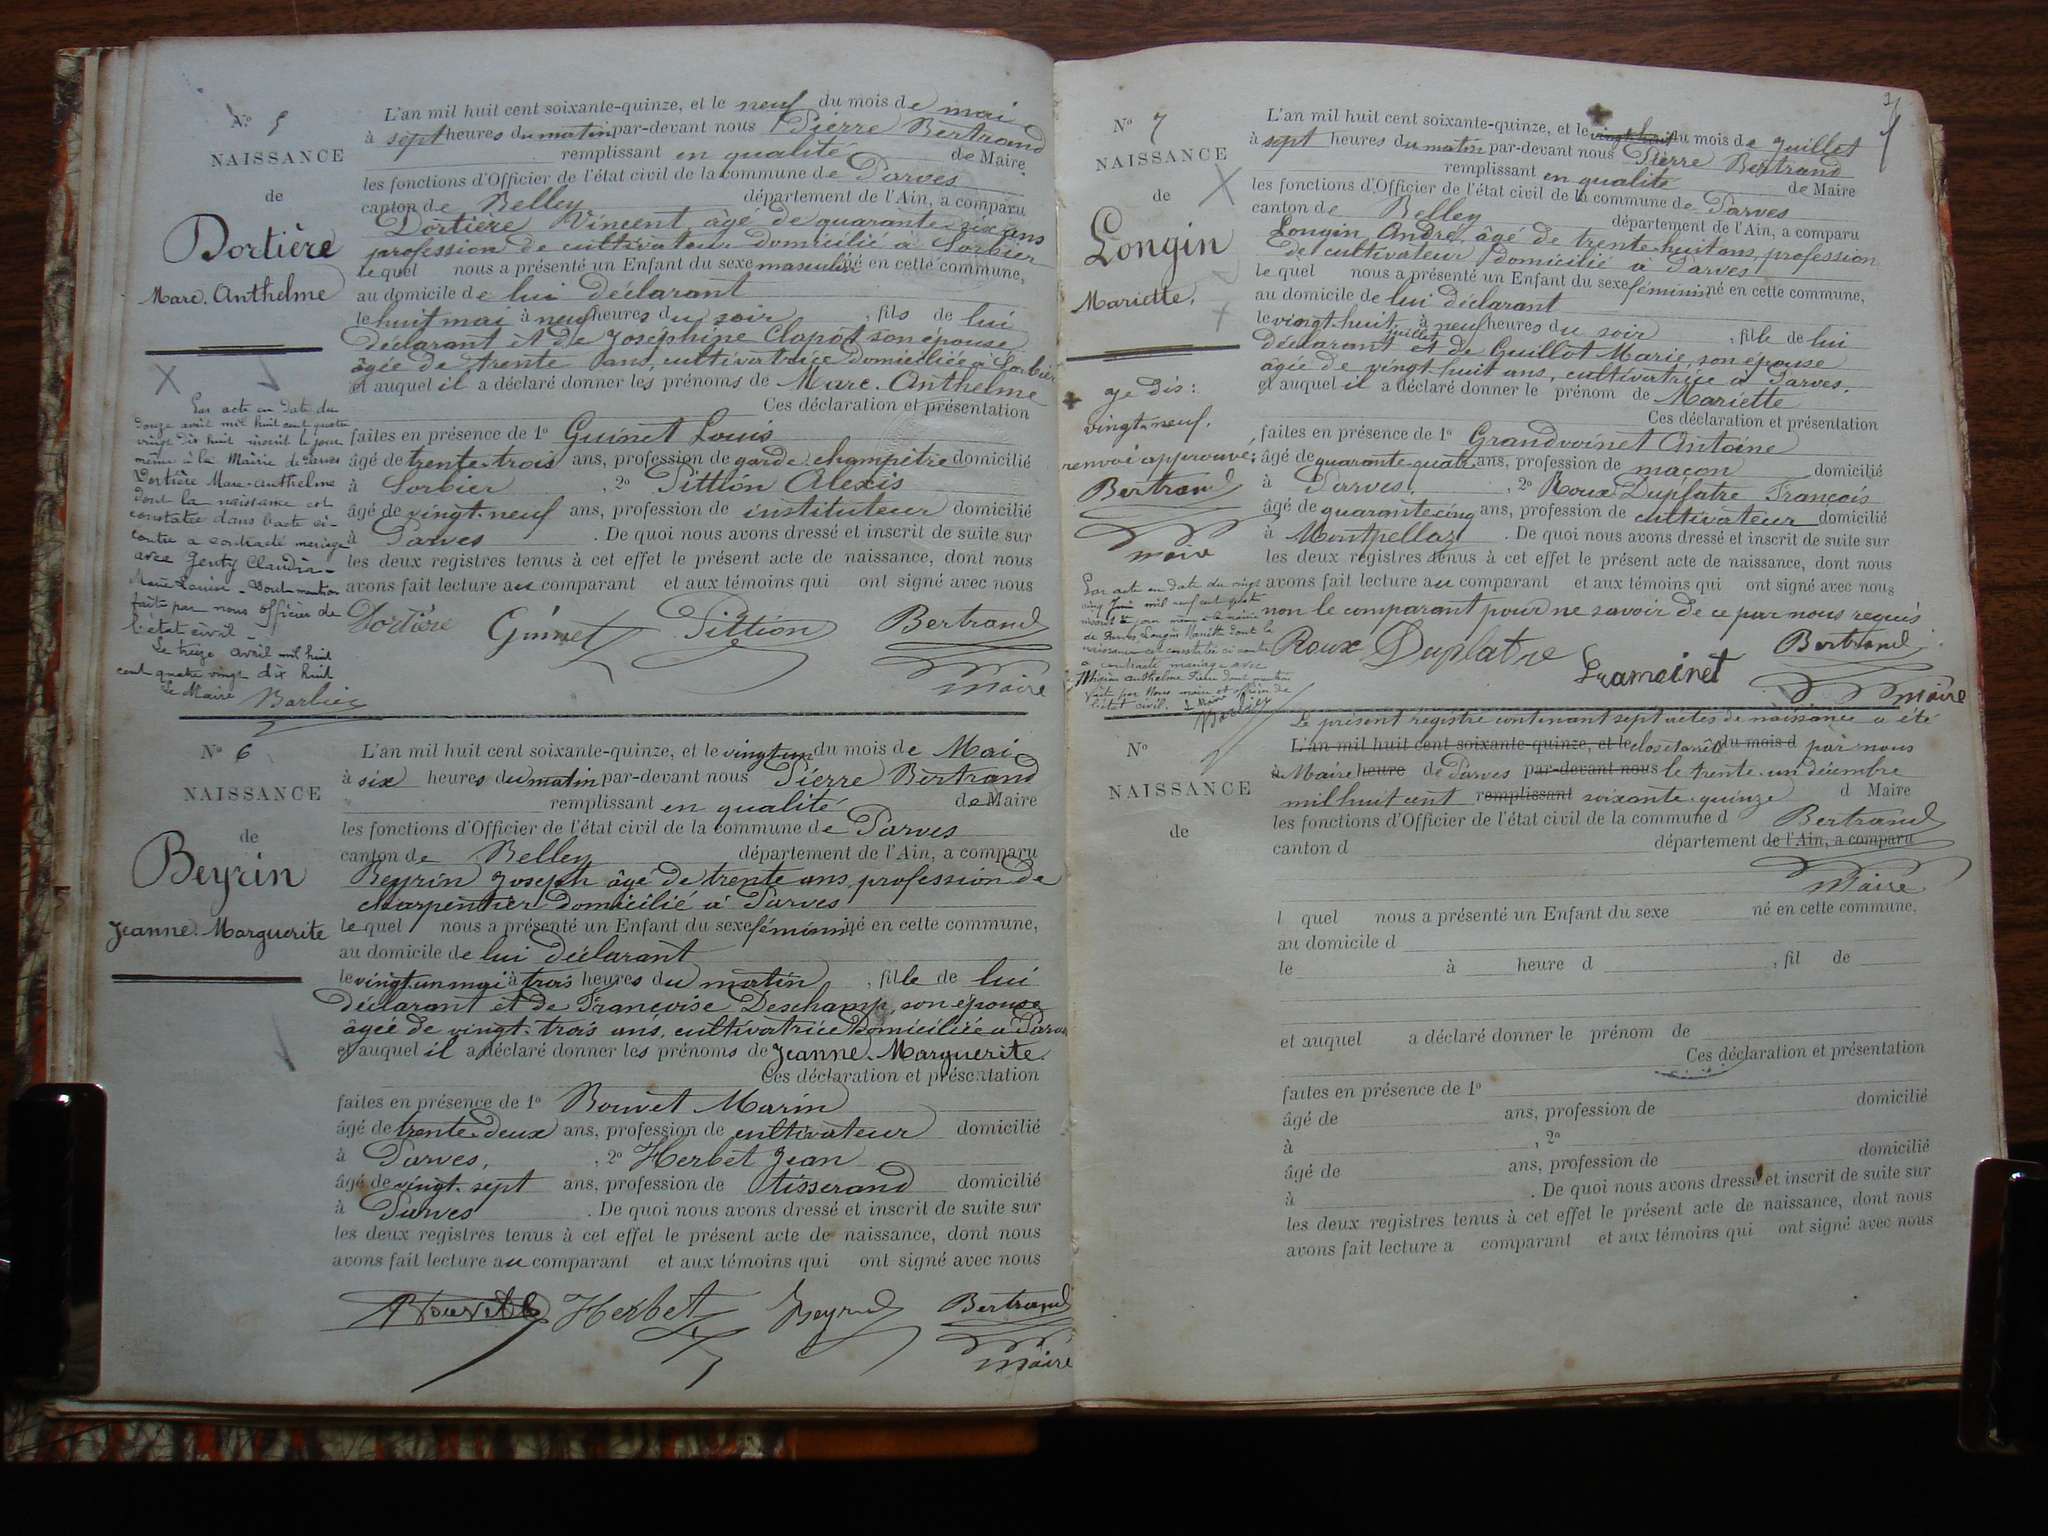 N° 5
NAISSANCE
de
Dortière
Marc. Anthelme
L'an mil huit cent soixante-quinze, et le neuf du mois de mai
à sept heures du matin par-devant nous Pierre Bertrand
remplissant en qualité de Maire
les fonctions d'Officier de l'état civil de la commune de Parves
canton de Belley département de l'Ain, a comparu
Dortière Vincent âgé de quarante six ans
profession de cultivateur domicilié à Sorbier
lequel nous a présenté un Enfant du sexe masculin né en cette commune,
au domicile de lui déclarant
le huit mai à neuf heures du soir, fils de lui
déclarant et de Joséphine Clopot son épouse
âgée de trente ans, cultivatrice domiciliée à Sorbier
et auquel il a déclaré donner les prénoms de Marc. Anthelme
Ces déclaration et présentation
faites en présence de 1° Guinet Louis
âgé de trente-trois ans, profession de garde-champêtre domicilié
à Sorbier, 2° Pittion Alexis
âgé de vingt-neuf ans, profession de instituteur domicilié
à Parves. De quoi nous avons dressé et inscrit de suite sur
les deux registres tenus à cet effet le présent acte de naissance, dont nous
avons fait lecture au comparant et aux témoins qui ont signé avec nous
Dortière Guinet Pittion Bertrand
maire
Par acte en date du
douze avril mil huit cent quatre
vingt dix huit inscrit le jour
même à la Mairie de Parves
Dortière Marc-Anthelme
dont la naissance est
constatée dans l'acte ci-
contre a contracté mariage
avec Genty Claudia-
Marie Louise - Dont mention
faite par nous officier de
l'état civil -
Le treize avril mil huit
cent quatre vingt dix huit
Le Maire Barbier
N° 6
NAISSANCE
de
Beyrin
Jeanne. Marguerite
L'an mil huit cent soixante-quinze, et le vingt un du mois de Mai
à six heures du matin par-devant nous Pierre Bertrand
remplissant en qualité de Maire
les fonctions d'Officier de l'état civil de la commune de Parves
canton de Belley département de l'Ain, a comparu
Beyrin Joseph âgé de trente ans profession de
charpentier domicilié à Parves
lequel nous a présenté un Enfant du sexe féminin né en cette commune,
au domicile de lui déclarant
le vingt un mai à trois heures du matin, fille de lui
déclarant et de Françoise Deschamp, son épouse
âgée de vingt-trois ans, cultivatrice domiciliée à Parves
et auquel il a déclaré donner les prénoms de Jeanne. Marguerite.
Ces déclaration et présentation
faites en présence de 1° Bouvet Marin
âgé de trente-deux ans, profession de cultivateur domicilié
à Parves, 2° Herbet Jean
âgé de vingt-sept ans, profession de tisserand domicilié
à Parves. De quoi nous avons dressé et inscrit de suite sur
les deux registres tenus à cet effet le présent acte de naissance, dont nous
avons fait lecture au comparant et aux témoins qui ont signé avec nous
Herbet Beyrin Bertrand
maire
N° 7
NAISSANCE
de
Longin
Mariette.
L'an mil huit cent soixante-quinze, et le vingt huit du mois de Juillet
à sept heures du matin par-devant nous Pierre Bertrand
remplissant en qualité de Maire
les fonctions d'Officier de l'état civil de la commune de Parves
canton de Belley département de l'Ain, a comparu
Longin André, âgé de trente-huit ans, profession
de cultivateur domicilié à Parves
lequel nous a présenté un Enfant du sexe féminin né en cette commune,
au domicile de lui déclarant
le vingt-huit juillet à neuf heures du soir, fille de lui
déclarant et de Guillot Marie, son épouse
âgée de vingt-huit ans, cultivatrice à Parves.
et auquel il a déclaré donner le prénom de Mariette
Ces déclaration et présentation
faites en présence de 1° Grandvoinet Antoine
âgé de quarante-quatre ans, profession de maçon domicilié
à Parves, 2° Roux Duplatre François
âgé de quarante cinq ans, profession de cultivateur domicilié
à Montpellaz. De quoi nous avons dressé et inscrit de suite sur
les deux registres tenus à cet effet le présent acte de naissance, dont nous
avons fait lecture au comparant et aux témoins qui ont signé avec nous
non le comparant pour ne savoir de ce par nous requis
Roux Duplatre Bertrand
maire
je dis:
vingt-neuf.
renvoi approuvé:
Bertrand
maire
Par acte en date du vingt
cinq Juin mil neuf cent quatre
inscrit le jour même à la mairie
de Parves Longin Mariette dont la
naissance est constatée ci contre
a contracté mariage avec
Anthelme dont mention
faite par Nous maire et officier de
l'état civil. Le Maire
Barbier
Le présent registre contenant sept actes de naissance a été
N°
NAISSANCE
de
L'an mil huit cent soixante-quinze, et le clos et arrêté du mois d par nous
à Maire heure de Parves par-devant nous le trente-un décembre
mil huit cent remplissant soixante-quinze d Maire
les fonctions d'Officier de l'état civil de la commune d Bertrand
canton d département de l'Ain, a comparu
maire
l quel nous a présenté un Enfant du sexe né en cette commune,
au domicile d
le à heure d , fil de
et auquel a déclaré donner le prénom de
Ces déclaration et présentation
faites en présence de 1°
âgé de ans, profession de domicilié
à , 2°
âgé de ans, profession de domicilié
à . De quoi nous avons dressé et inscrit de suite sur
les deux registres tenus à cet effet le présent acte de naissance, dont nous
avons fait lecture a comparant et aux témoins qui ont signé avec nous